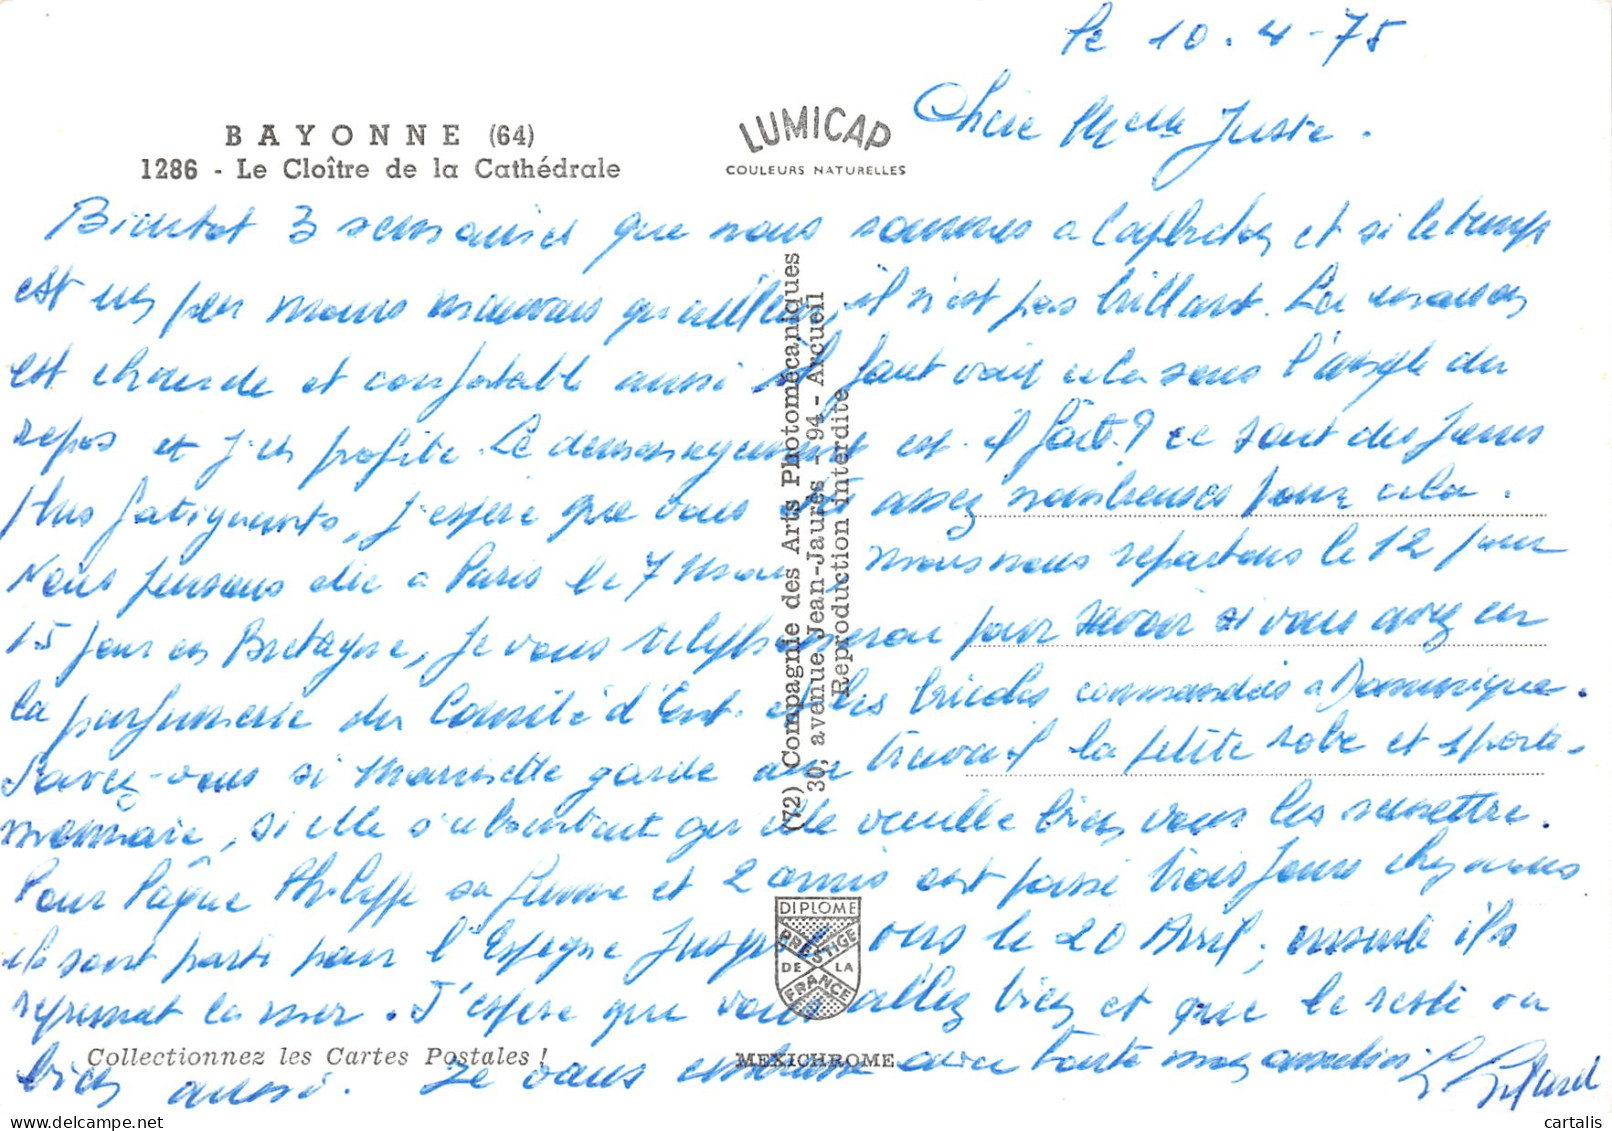 le 10.4-75
BAYONNE (64)
1286 - Le Cloître de la Cathédrale
LUMICAP
COULEURS NATURELLES
Chère Melle Juste.
Bientot 3 semaines que nous sommes a Capbreton et si le temps
est un peu moins mauvais qu'ailleurs, il n'est pas brillant. La maison
est chaude et confortable aussi il faut voir cela sous l'angle du
repos et j'en profite. Le demenagement est-il fait? ce sont des jours
plus fatiguants, j'espère que vous êtes assez nombreuses pour cela.
Nous pensons être a Paris le 7 Mai, mais nous repartons le 12 pour
15 jours en Bretagne, je vous telephonerai pour savoir si vous avez eu
la parfumerie du Comité d'Ent. et les bricoles commandés a Dominique.
Savez-vous si Marinette garde du travail la petite robe et 1 porte-
monnaie, si elle s'absentait qu'elle veuille bien vous les remettre.
Pour Pâque Philippe sa femme et 2 amis ont passé trois jours chez nous
ils sont parti pour l'Espagne jusque vers le 20 Avril, ensuite ils
reprennent la mer. J'espère que vous allez bien et que le reste va
bien aussi. Je vous embrasse avec toute mon amitié.
(72) Compagnie des Arts Photomécaniques
30, avenue Jean-Jaurès - 94 - Arcueil
Reproduction interdite
DIPLOME
PRESTIGE
DE LA
FRANCE
Collectionnez les Cartes Postales !
MEXICHROME
cartalis